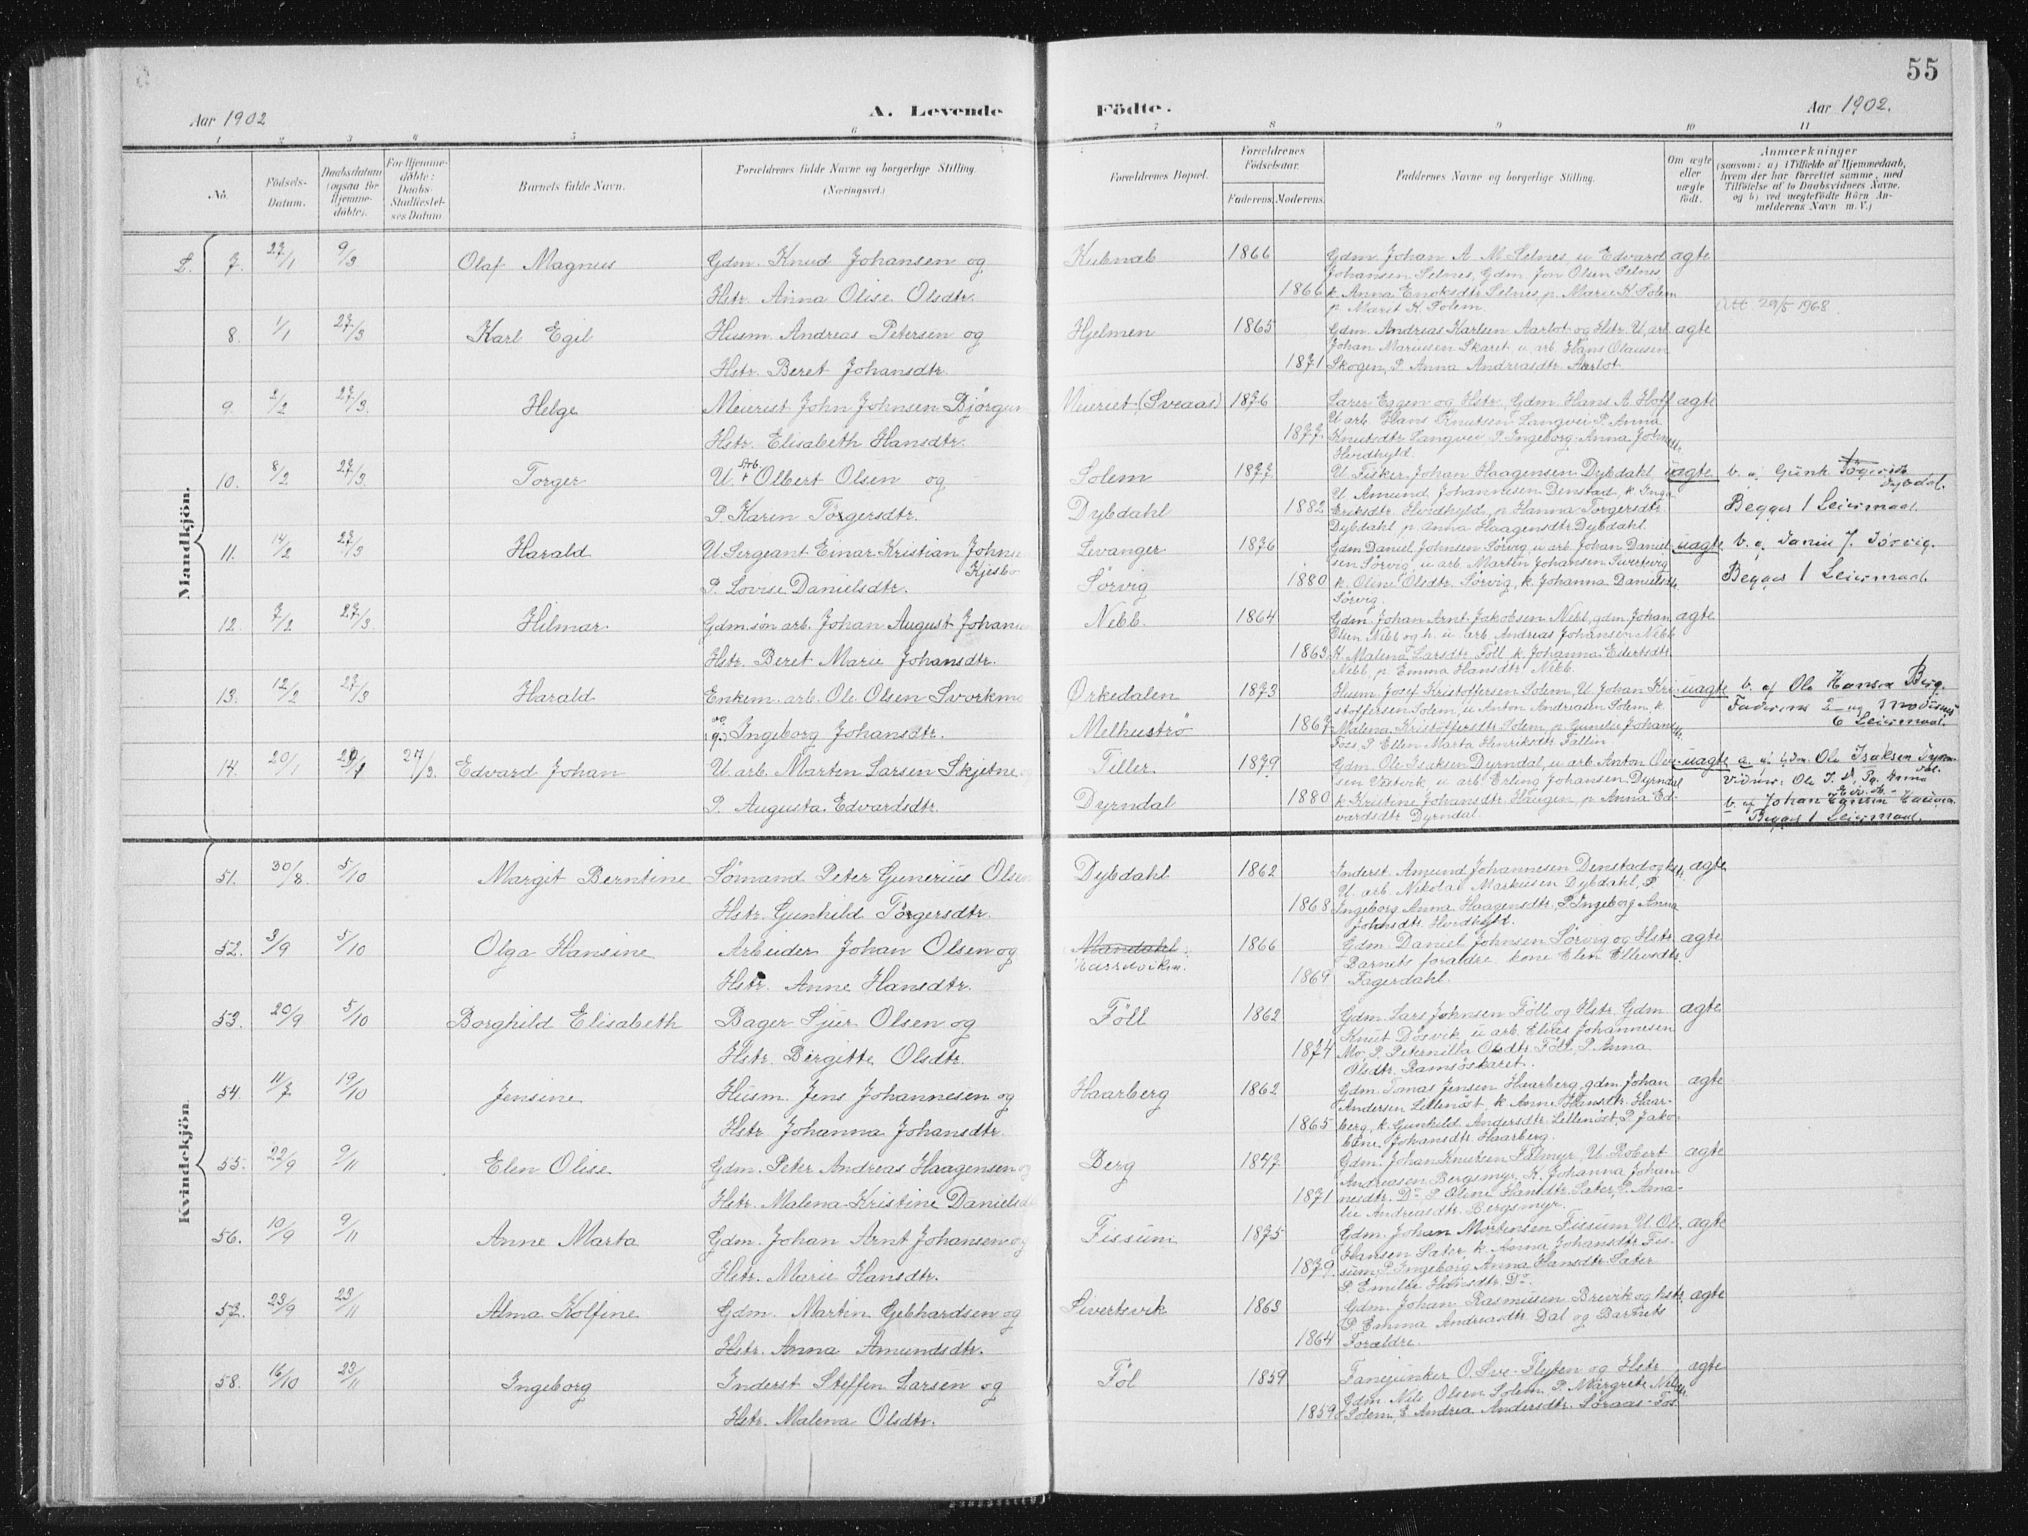 55
Aar 1902
A. Levende
Födte.
Aar 1902.
1 2 3 4 5 6 7 8 9 10 11
No.
Födsels-Datum.
Daabsdatum (ogsaa for Hjemmedöbte).
For Hjemmedöbte: Daabs-Stadfæstelses Datum
Barnets fulde Navn.
Forældrenes fulde Navne og borgerlige Stilling. (Næringsvei.)
Forældrenes Bopæl.
Forældrenes Födselsaar.
Faderens. Moderens.
Faddernes Navne og borgerlige Stilling.
Om ægte eller uægte födt.
Anmærkninger
(saasom: a) i Tilfælde af Hjemmedaab, hvem der har forrettet samme, med Tilföielse af to Daabsvidners Navne, og b) ved uægtefödte Börn Anmelderens Navn m. V.)
Mandkjön.
L. 7. 27/1 9/3 Olaf Magnus Gdm. Knud Johansen og Kubnab 1866 Gdm. Johan A. M. Selnes, u Edvard agte
Johansen Selnes, Gdm. Jon Olsen Selnes,
Hstr. Anna Olise Olsdtr. 1866 k. Anna Enoksdtr Selnes, p. Marie K. Solem
p. Marit K. Solem. Att. 29/5 1968.
8. 1/1 27/3 Karl Egil Husm. Andreas Petersen og Hjelmen 1865 Gdm. Andreas Karlsen Aarbot og Hstr. U. arb. agte
Johan Mariusen Skaret, u. arb. Hans Olausen
Hstr. Beret Johansdtr. 1871 Skogen, P. Anna Andreasdtr. Aarbot.
9. 2/2 27/3. Helge Meierist John Johnsen Bjørgum Meieriet (Sveaas) 1876 Larer Eggen og Hstr., Gdm. Hans A. Hoff agte
U arb. Hans Knutsen Langvei P. Anna
Hstr. Elisabeth Hansdtr. 1877. Knutsdtr Langvei P. Ingeborg Anna Johnsdtr.
Hvidkyld.
10. 8/2 27/3. Torger U. Arb. Olbert Olsen og Solem 1877 U Fisker Johan Haagensen Dybdahl uagte b. a. Gunh. Togersdtr Dybdal.
U Amund Johannesen Denstad, k. Inga
P. Karen Torgersdtr. Dybdahl 1882 Eriksdtr. Hvidkyld, p Hanna Torgersdtr. Begges 1 Leiermaal.
Dybdahl p. Anna Haagensdtr. Dybdahl.
11. 14/2 27/3 Harald U. Sergeant Einar Kristian Johnsen Kjesbo Levanger 1876 Gdm. Daniel Johnsen Sørvig, u arb. Johan Daniel- uagte b. a. Daniel J. Sørvig.
sen Sørvig, u arb. Martin Johansen Sivertsvig
P. Lovise Danielsdtr. Sørvig 1880 k. Oline Olsdtr. Sørvig, k. Johanna Danielsdtr. Begges 1 Leiermaal.
Sørvig.
12. 7/2 27/3 Hilmar Gdm.søn arb. Johan August Johansen Nebb. 1864 Gdm. Johan Arnt Jakobsen Nebb, gdm. Johan agte
Elen Nebb og h. u arb Andreas Johansen Nebb
Hstr. Beret Marie Johansdtr. 1863 K. Malena Larsdtr. Föll k. Johanna Edertsdtr.
Nebb, p Emma Hansdtr Nebb.
13. 12/2 27/3 Harald Enkem. arb. Ole Olsen Svorkmo Ørkedalen 1873 Husm. Josef Kristoffersen Solem, U Johan Kri- uagte b. af Ole Hansen Berg.
stoffersen Solem, u Anton Andreasen Solem, k. Faderens 2 og Moderens
Ingeborg Johansdtr. Melhustrø 1867 Malena Kristoffersdtr Solem, p Gunelie Johansdtr. 6 Leiermaal.
Foss, P. Ellen Marta Henriksdtr. Fallin.
14. 20/1 29/1 27/3. Edvard Johan U. arb. Marten Larsen Skjetne og Tiller 1879 Gdm. Ole Isaksen Dyrndal, u arb. Anton Ole- uagte a. af Gdm. Ole Isaksen Dyrndal.
sen Vestvik, u arb Erling Johansen Dyrndal Vidner: Ole I. D., Pg. Anna
P. Augusta Edvardsdtr. Dyrndal 1880 k Kristine Johansdtr. Haugen, p Anna Ed- b. af Johan
vardsdtr Dyrndal. Begges 1 Leiermaal.
Kvindekjön
51. 30/8. 5/10 Margit Berntine Sømand Peter Gunerius Olsen Dybdahl 1862 Inderst. Amund Johannesen Denstad og agte
U. arb. Nikolai Markusen Dybdahl, P
Hstr. Gunhild Torgersdtr. 1868 Ingeborg Anna Haagensdtr. P Ingeborg Anna
Johnsdtr. Hvidkyld.
52. 3/9 5/10 Olga Hansine Arbeider Johan Olsen og Mandahl 1866 Gdm. Daniel Johnsen Sørvig og Hstr. agte
Barnets foraldre, kone Elen Ellevsdtr.
Hstr. Anne Hansdtr. 1869 Fagerdahl.
53. 20/9 5/10 Borghild Elisabeth Bager Sjur Olsen og Föll 1862 Gdm. Lars Johnsen Föll og Hstr Gdm. agte
Knut Dösvik, u arb. Elias Johannesen
Hstr. Birgitte Olsdtr. 1874 Mo, P. Peternilla Olsdtr. Föll, P. Anna
Olsdtr. Ramsöskaret.
54. 11/7 19/10 Jensine Husm. Jens Johannesen og Haarberg 1862 Gdm. Tomas Jensen Haarberg gdm. Johan agte
Andersen Lillenöst, k. Anne Hansdtr. Haar-
Hstr Johanna Johansdtr. 1865 berg, k. Gunhild Andersdtr. Lillenöst P. Jako-
bine Johansdtr. Haarberg.
55. 22/9 9/11 Elen Olise Gdm. Peter Andreas Haagensen og Berg 1847 Gdm. Johan Knutsen Falmyr, U. Robert agte
Andreasen Bergsmyr, K. Johanna Johan-
Hstr. Malena Kristine Danielsdtr 1871 nesdtr. Do P. Oline Hansdtr. Sater, P. Ama-
lie Andreasdtr. Bergsmyr.
56. 10/9 9/11 Anne Marta Gdm. Johan Arnt Johansen og Fissum 1875 Gdm. Johan Mortensen Fissum U Ole agte
Hansen Sater, k. Anna Johansdtr. Fis-
Hstr. Marie Hansdtr. 1879 sum P. Ingeborg Anna Hansdtr Sater
P. Emilie Hansdtr. Do.
57. 23/9 23/11 Alma Kolfine Gdm. Martin Gebhardsen og Sivertsvik 1863 Gdm. Johan Rasmusen Brevik og hstr. agte
P. Emma Andreasdtr Dal og Barnets
Hstr. Anna Amundsdtr. 1864 Foraldre.
58. 16/10 23/11 Ingeborg Inderst Steffen Larsen og Föl 1859 Fanejunker O. Sve-Flyten og Hstr agte
Gdm. Nils Olsen Solem, P. Margrete Nilsdtr.
Hstr. Malena Olsdtr. 1859 Solem, P. Andrea Andersdtr. Søraas-Fos